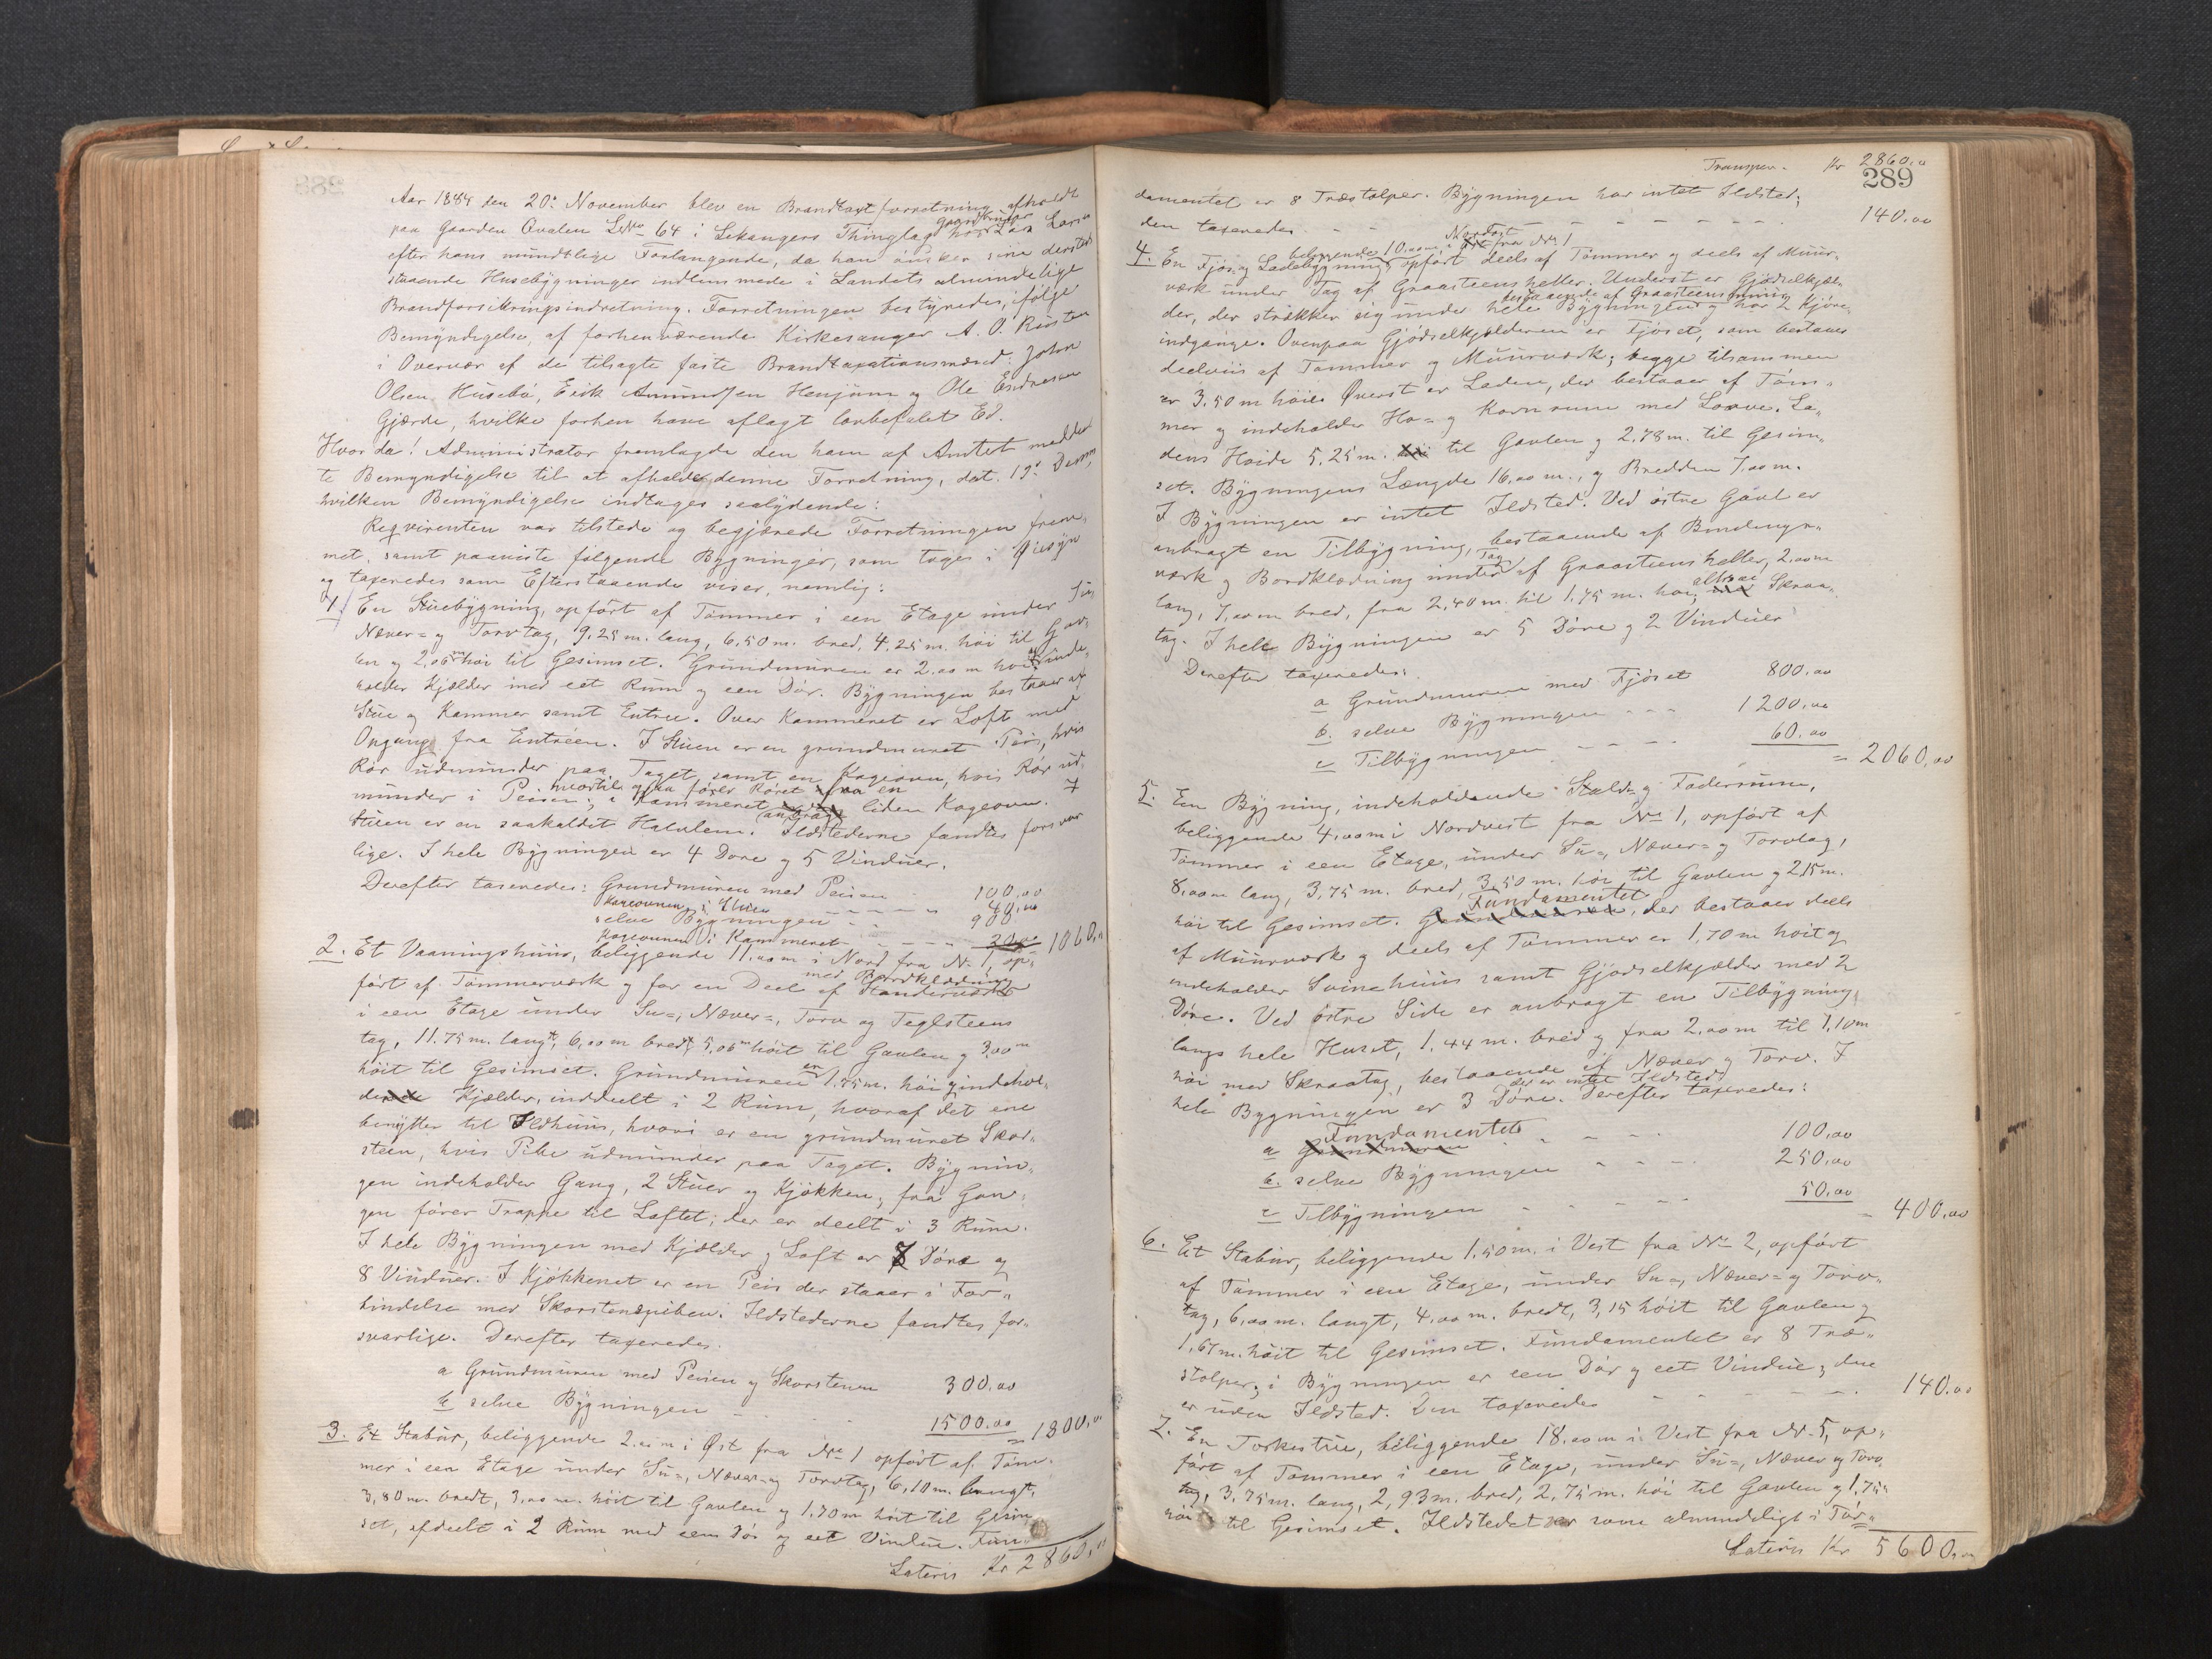 Aar 1884 den 20de November blev en Brandtaxtforretning afholdt
paa Gaarden Qvalen LNo 64 i Lekangers Thinglag hos Gaardbruger Lars
efter hans mundtlige Forlangende, da han ønsker sine dersteds
staaende Husebygninger indlemmede i Landets almindelige
Brandforsikringsindretning. Forretningen bestyredes, ifølge
Bemyndigelse, af forhenværende Kirkesanger A. O.
i Overvær af de tilsagte faste Brandtaxationsmænd: John
Olsen Husebø, Erik Amundsen Henjum og Ole Endresen
Gjærde, hvilke forhen have aflagt lovbefalet Ed.
Hvor da! Administrator fremlagde den ham af Amtet meddel
te Bemyndigelse til at afholde denne Forretning, dat. 19de Dennes,
hvilken Bemyndigelse indtages saalydende:
Reqvirenten var tilstede og begjærede Forretningen frem„
met, samt paaviste følgende Bygninger, som toges i Øiesyn
og taxeredes som Efterstaaende viser, nemlig:
1. En Stuebygning, opført af Tømmer i een Etage under Su=
Næver= og Torvtag, 9,25 m. lang, 6,50 m. bred, 4,25 m. høi til Gav„
len og 2,06 m høi til Gesimset. Grundmuren er 2.00 m høi og inde„
holder Kjælder med eet Rum og een Dør. Bygningen bestaaer af
Stue og Kammer samt Entree. Over Kammeret er Loft med
Opgang fra Entréen. I Stuen er en grundmuret Peis, hvis
Rør udmunder paa Taget, samt en Kogeovn, hvis Rør ud„
munder i Peisen, hvortil ogsaa fører Røret fra en i Kammeret anbragt liden Kogeovn. I
Stuen er en saakaldet Halvlem. Ildstederne fandtes forsvar
lige. I hele Bygningen er 4 Døre og 5 Vinduer.
Derefter taxeredes: Grundmuren med Peisen 100,00
Kogeovnen i Stuen 40,00
selve Bygningen 900
Kogeovnen i Kammeret 20,00 1060,00
2. Et Vaaningshuus, beliggende 11,00 m i Nord fra No 1, op„
ført af Tømmerværk og for en Deel af Standerværk med Bordklædning
i een Etage under Su=, Næver=, Torv og Teglsteens
tag, 11.75 m. langt, 6,00 m bredt, 5,06 m høit til Gavlen og 3,00 m
høit til Gesimset. Grundmuren er 1,75 m. høi og indehol„
der Kjælder, inddeelt i 2 Rum, hvoraf det ene
benyttes til Ildhuus, hvori er en grundmuret Skor„
steen, hvis Pibe udmunder paa Taget. Bygnin„
gen indeholder Gang, 2 Stuer og Kjøkken; fra Gan„
gen fører Trappe til Loftet; der er deelt i 3 Rum.
I hele Bygningen med Kjælder og Loft er 7 Døre og
8 Vinduer. I Kjøkkenet er en Peis der staaer i For„
bindelse med Skorstenspiben. Ildstederne fandtes for„
svarlige. Derefter taxeredes.
a Grundmuren med Peisen og Skorstenen 300,00
b selve Bygningen 1500.00 = 1800,00
3. Et Stabur, beliggende 2.00 m i Øst fra No 1 opført af Tøm„
mer i een Etage under Su=, Næver= og Torvtag, 6,10 m. langt,
3,80 m. bredt, 3,00 m. høit til Gavlen og 1.70 m høit til Gesim„
set, afdeelt i 2 Rum med een Dør og eet Vindue. Fun„
Lateris Kr 2860,00
Transpor. Kr 2860,00
289
damentet er 8 Træstolper. Bygningen har intet Ildsted;
den taxeredes 140,00
4. En Fjøs og Ladebygning, beliggende 10.00 m i Nordost fra No 1 opført deels af Tømmer og deels af Muur„
værk under Tag af Graasteensheller. Underst er Gjødselkjæl„
der, der strækker sig under hele Bygningen, bestaaende af Graasteensmuur og har 2 Kjøre„
indgange. Ovenpaa Gjødselkjælderen er Fjøset, som bestaaer
deelviis af Tømmer og Muurværk; begge tilsammen
er 3,50 m høie. Øverst er Laden, der bestaaer af Tøm„
mer og indeholder Hø= og Kornrum med Loove. La„
dens Høide 5,25 m. til Gavlen og 2,78 m. til Gesim„
set. Bygningens Længde 16,00 m., og Bredden 7.00 m.
I Bygningen er intet Ildsted. Ved østre Gavl er
anbragt en Tilbygning, bestaaende af Bindings„
værk og Bordklædning under Tag af Graasteensheller, 2.00 m
lang, 7,00 m bred, fra 2,40 m. til 1,75 m. høi, altsaa Skraa„
tag. I hele Bygningen er 5 Døre og 2 Vinduer
Derefter taxeredes:
a Grundmuren med Fjøset 800.00
b. selve Bygningen 1200.00
c Tilbygningen 60.00 = 2060,00
5. En Bygning, indeholdende Stald= og Foderrum,
beliggende 4,00 m i Nordvest fra No 1, opført af
Tømmer i een Etage, under Su=, Næver= og Torvtag,
8,00 m lang, 3,75 m. bred, 3,50 m. høi til Gavlen og 2,15 m.
høi til Gesimset. Fundamentet, der bestaaer deels
af Muurværk og deels af Tømmer er 1,70 m høit og
indeholder Svinehuus samt Gjødselkjælder med 2
Døre. Ved østre Side er anbragt en Tilbygning,
langs hele Huset, 1.44 m. bred og fra 2.00 m til 1,10 m
høi med Skraatag, bestaaende af Næver og Torv. I
hele Bygningen er 3 Døre. der er intet Ildsted. Derefter taxeredes:
a Fundamentet 100,00
b. selve Bygningen 250,00
c Tilbygningen 50,00 = 400,00
6. Et Stabur, beliggende 1.50 m. i Vest fra No 2, opført
af Tømmer i een Etage, under Su=, Næver= og Torv„
tag, 6,00 m. langt, 4,00 m. bredt, 3,15 høit til Gavlen og
1,67 m. høit til Gesimset. Fundamentet er 8 Træ„
stolper; i Bygningen er een Dør og eet Vindue; den
er uden Ildsted. Den taxeredes 140.00
7. En Torkestue, beliggende 18.00 m i Vest fra No 5, op„
ført af Tømmer i een Etage, under Su=, Næver og Torv„
tag, 3,75 m. lang, 2,93 m. bred, 2,75 m. høi til Gavlen og 1.75 m
høi til Gesimset. Ildstedet er som almindeligt i Tør„
Lateris Kr 5600,00